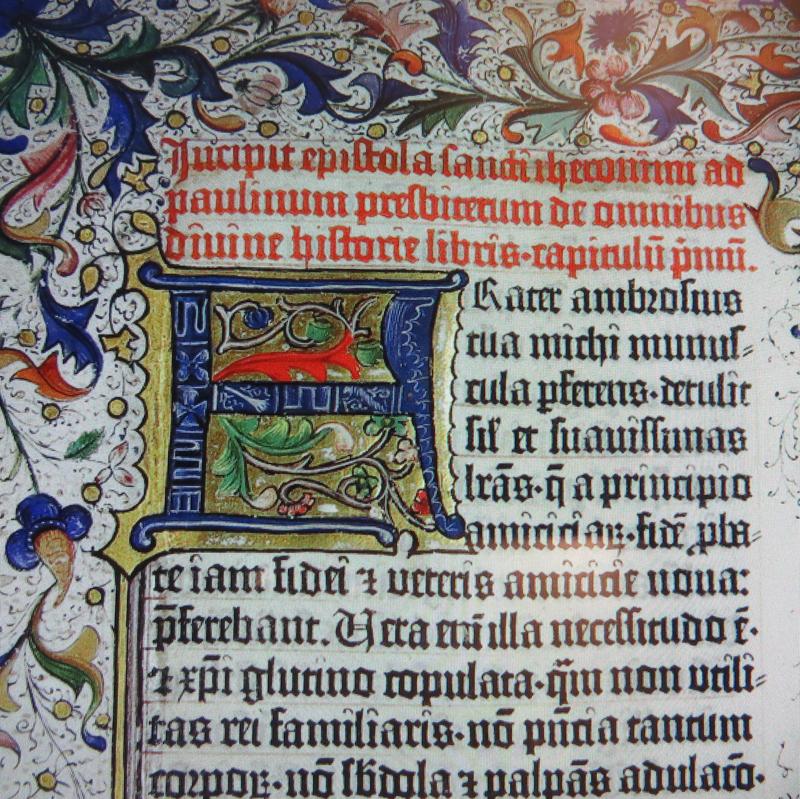 Incipit epistola sancti iheronimi ad
paulinum presbiterum de omnibus
divine historie libris·capitulū p̄mū.
FRater ambrosius
tua michi munus⸗
cula pferens·detulit
sil̄ et suavissimas
lrās·q̄ a principio
amiciciar̄·fidē p̱ba⸗
te iam fidei ⁊ veteris amicicie nova:
p̄ferebant. Vera em̄ illa necessitudo ē·
⁊ xp̄i glutino copulata·q̄m non utili⸗
tas rei familiaris·nō p̄ntia tantum
corpoꝝ·nō sb̄dola ⁊ palpās adulacō·